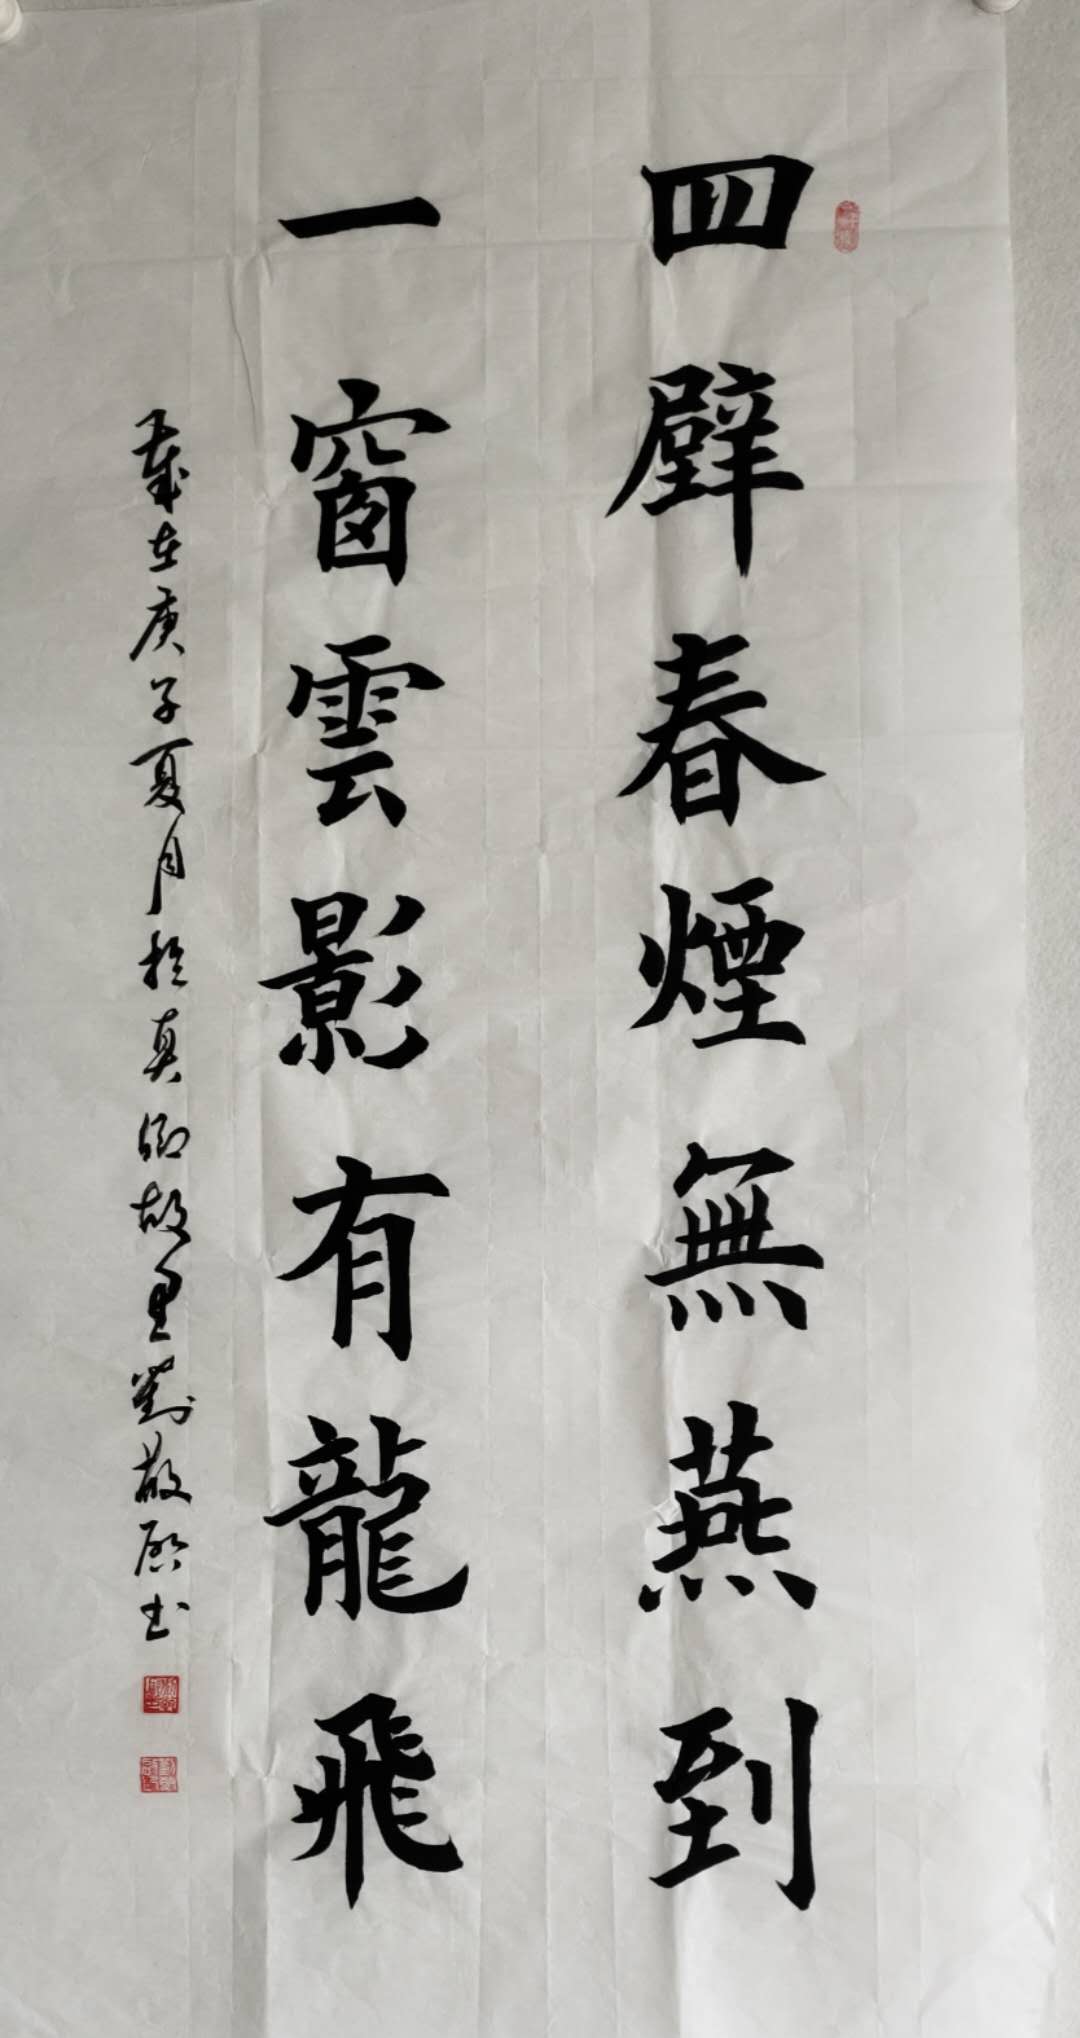 四壁春煙無燕到
一窗雲影有龍飛
歲在庚子夏月於真卿故里劉敬啟书